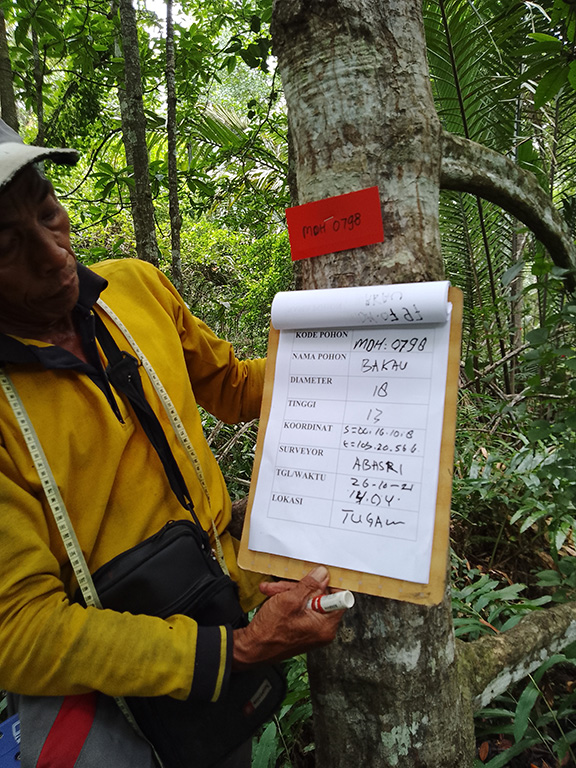 MDH 0798
KODE POHON MDH. 0798
NAMA POHON BAKAU
DIAMETER 18
TINGGI 13
KOORDINAT S=00.16.10.8
E=103.20.566
SURVEYOR ABASRI
TGL/WAKTU 26-10-21
14.04.
LOKASI